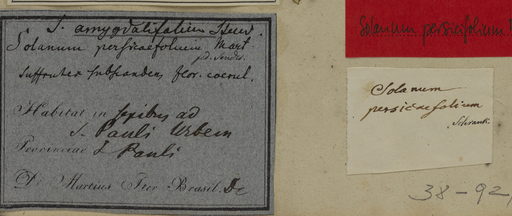 S. amygdalifolium Steud.
Solanum persicaefolium Mart.
Suffrutex subscandens, flor. coerul.
Habitat in sepibus ad
S. Pauli Urbem
Provinciae S. Pauli
D. Martius Iter Brasil. Dc
Solanum persicifolium
Solanum
persicaefolium
Schrank.
38-92